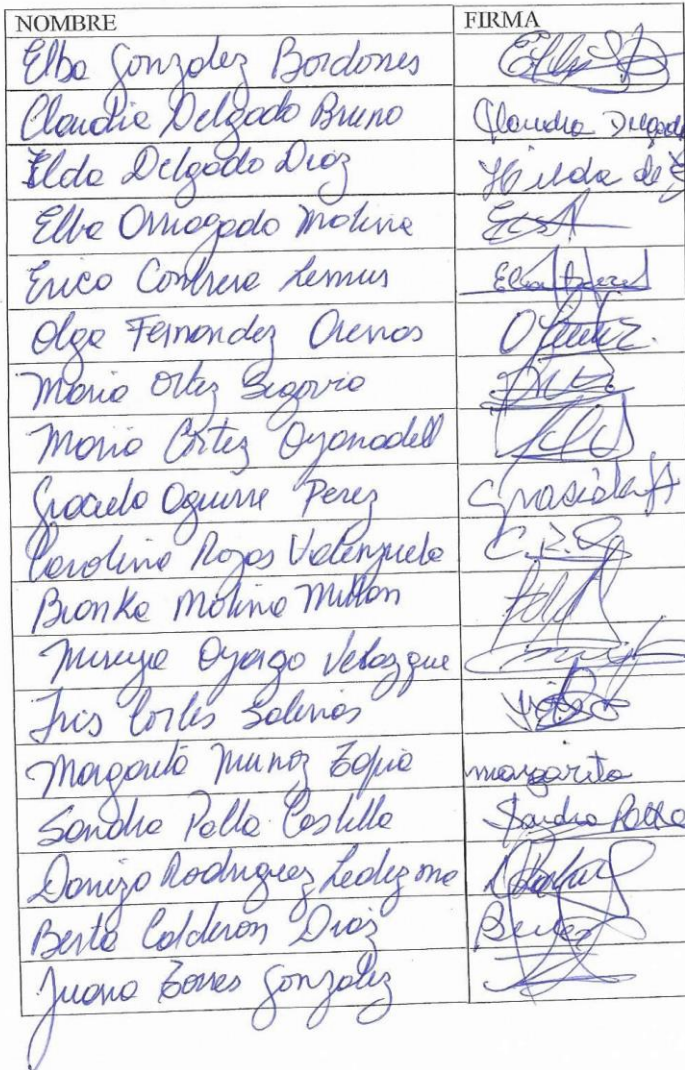 NOMBRE FIRMA
Elba Gonzalez Bordones
Claudia Delgado Bruno Claudia Delgado
Ilda Delgado Diaz Hilda de
Elba Omegado Molina
Erica Contrera Lemus
Olga Fernandez Arenas
Maria Ortiz Segovia
Maria Cortez Oyanadell
Graciela Aguirre Perez
Carolina Rojas Valenzuela C.R.
Bianka Molina Millan
Mireya Oyargo Velazque
Iris Cortes Salinas
Margarita Munoz Tapia margarita
Sandra Palla Castilla Sandra Palla
Daniza Rodriguez Ledezma
Berta Calderon Diaz
Juana Torres Gonzalez